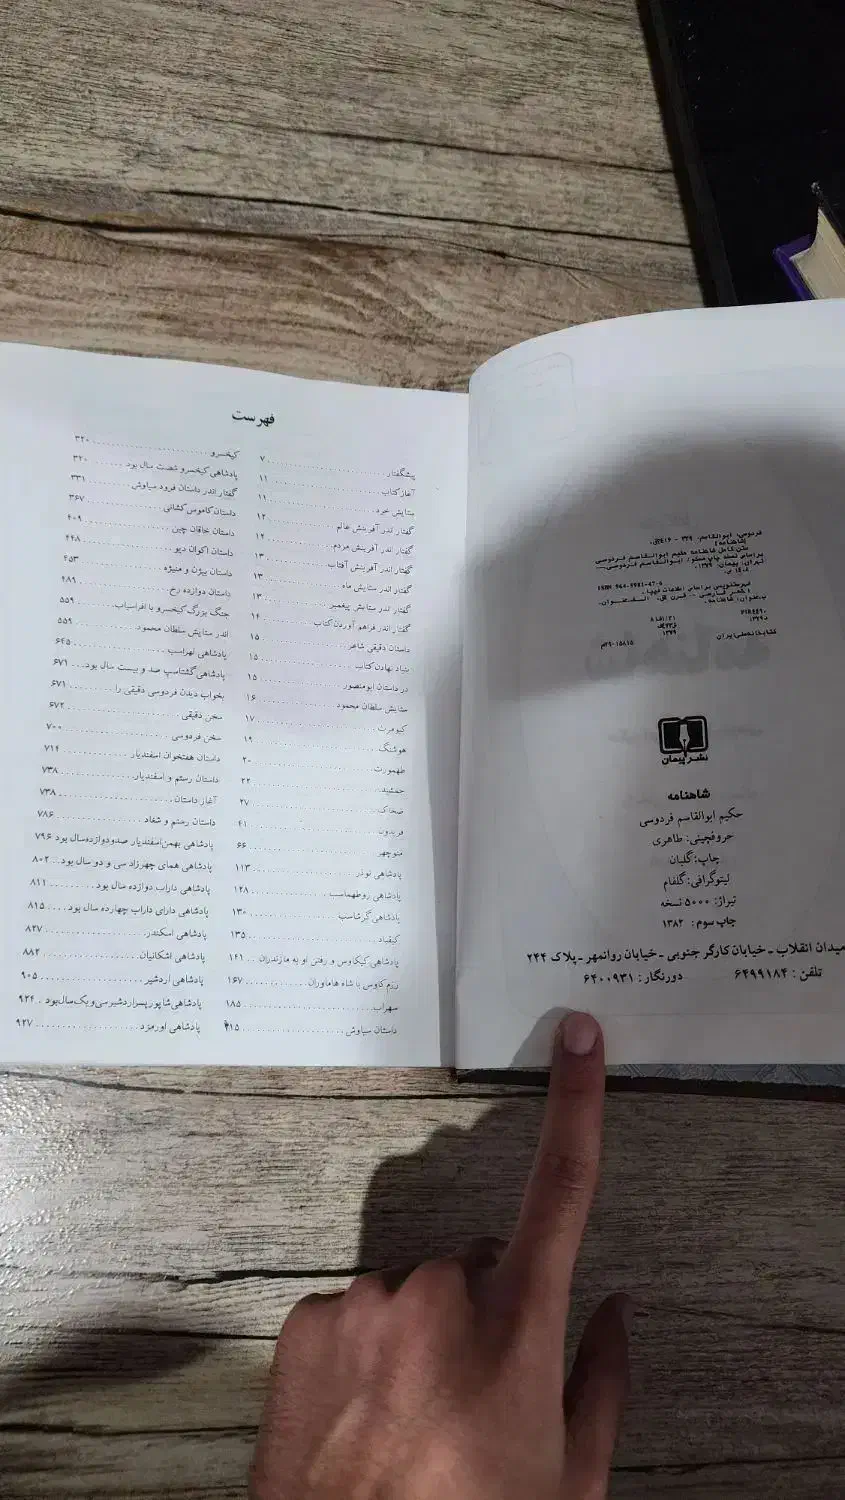 فردوسی، ابوالقاسم، ۳۲۹ - ۴۱۶؟ق.
[شاهنامه]
متن کامل شاهنامه حکیم ابوالقاسم فردوسی
براساس نسخه چاپ مسکو / ابوالقاسم فردوسی.ــ
تهران: پیمان، ۱۳۷۹.
ISBN 964-5981-47-6
فهرستنویسی براساس اطلاعات فیپا.
۱. شعر فارسی -- قرن ۴ق. الف. عنوان.
ب. عنوان: شاهنامه.
PIR۴۴۹۰
۱۳۷۹
کتابخانه ملی ایران
۱۵۸۱۵-۷۹م
نشر پیمان
شاهنامه
حکیم ابوالقاسم فردوسی
حروفچینی: طاهری
چاپ: گلبان
لیتوگرافی: گلفام
تیراژ: ۵۰۰۰ نسخه
چاپ سوم: ۱۳۸۲
میدان انقلاب ـ خیابان کارگر جنوبی ـ خیابان روانمهر ـ پلاک ۲۴۴
تلفن: ۶۴۹۹۱۸۴ دورنگار: ۶۴۰۰۹۳۱
فهرست
پیشگفتار ۷
آغاز کتاب ۱۱
ستایش خرد ۱۱
گفتار اندر آفرینش عالم ۱۲
گفتار اندر آفرینش مردم ۱۲
گفتار اندر آفرینش آفتاب ۱۳
گفتار اندر ستایش ماه ۱۳
گفتار اندر ستایش پیغمبر ۱۳
گفتار اندر فراهم آوردن کتاب ۱۴
داستان دقیقی شاعر ۱۵
بنیاد نهادن کتاب ۱۵
در داستان ابومنصور ۱۵
ستایش سلطان محمود ۱۶
کیومرث ۱۷
هوشنگ ۱۹
طهمورث ۲۰
جمشید ۲۲
ضحاک ۲۷
فریدون ۴۱
منوچهر ۶۶
پادشاهی نوذر ۱۱۳
پادشاهی زوطهماسب ۱۲۸
پادشاهی گرشاسب ۱۳۰
کیقباد ۱۳۵
پادشاهی کیکاوس و رفتن او به مازندران ۱۴۱
رزم کاوس با شاه هاماوران ۱۶۷
سهراب ۱۸۵
داستان سیاوش ۲۱۵
کیخسرو ۳۲۰
پادشاهی کیخسرو شصت سال بود ۳۲۰
گفتار اندر داستان فرود سیاوش ۳۳۱
داستان کاموس کشانی ۳۶۷
داستان خاقان چین ۴۰۹
داستان اکوان دیو ۴۴۸
داستان بیژن و منیژه ۴۵۳
داستان دوازده رخ ۴۸۹
جنگ بزرگ کیخسرو با افراسیاب ۵۵۹
اندر ستایش سلطان محمود ۵۵۹
پادشاهی لهراسب ۶۴۵
پادشاهی گشتاسپ صد و بیست سال بود ۶۷۱
بخواب دیدن فردوسی دقیقی را ۶۷۱
سخن دقیقی ۶۷۲
سخن فردوسی ۷۰۰
داستان هفتخوان اسفندیار ۷۱۴
داستان رستم و اسفندیار ۷۳۸
آغاز داستان ۷۳۸
داستان رستم و شغاد ۷۸۶
پادشاهی بهمن اسفندیار صد و دوازده سال بود ۷۹۶
پادشاهی همای چهرزاد سی و دو سال بود ۸۰۲
پادشاهی داراب دوازده سال بود ۸۱۱
پادشاهی دارای داراب چهارده سال بود ۸۱۵
پادشاهی اسکندر ۸۲۷
پادشاهی اشکانیان ۸۸۲
پادشاهی اردشیر ۹۰۵
پادشاهی شاپور پسر اردشیر سی و یک سال بود ۹۲۴
پادشاهی اورمزد ۹۲۷